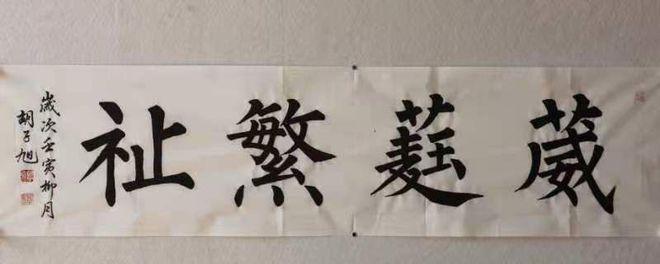 葳蕤繁祉
歲次壬寅柳月
胡子旭